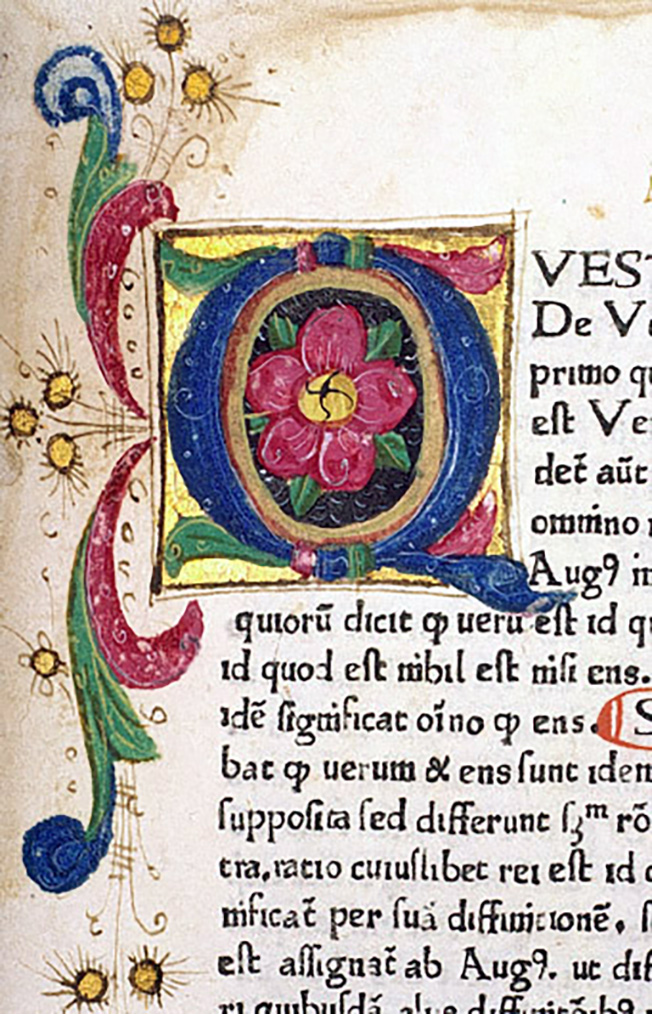 QVEST
De Ve
primo q
est Ver
det̄ aūt
omnino
Augꝰ in
quiorū dicit ꝙ ueru est id q
id quod est nihil est nisi ens.
idē significat oīno ꝙ ens. S
bat ꝙ uerum & ens sunt idem
supposita sed differunt sꝫᵐ rō
tra. ratio cuiuslibet rei est id
nificat̄ per suā diffinicionē. s
est assignat̄ ab Augꝰ. ut dif
ri quibusdā